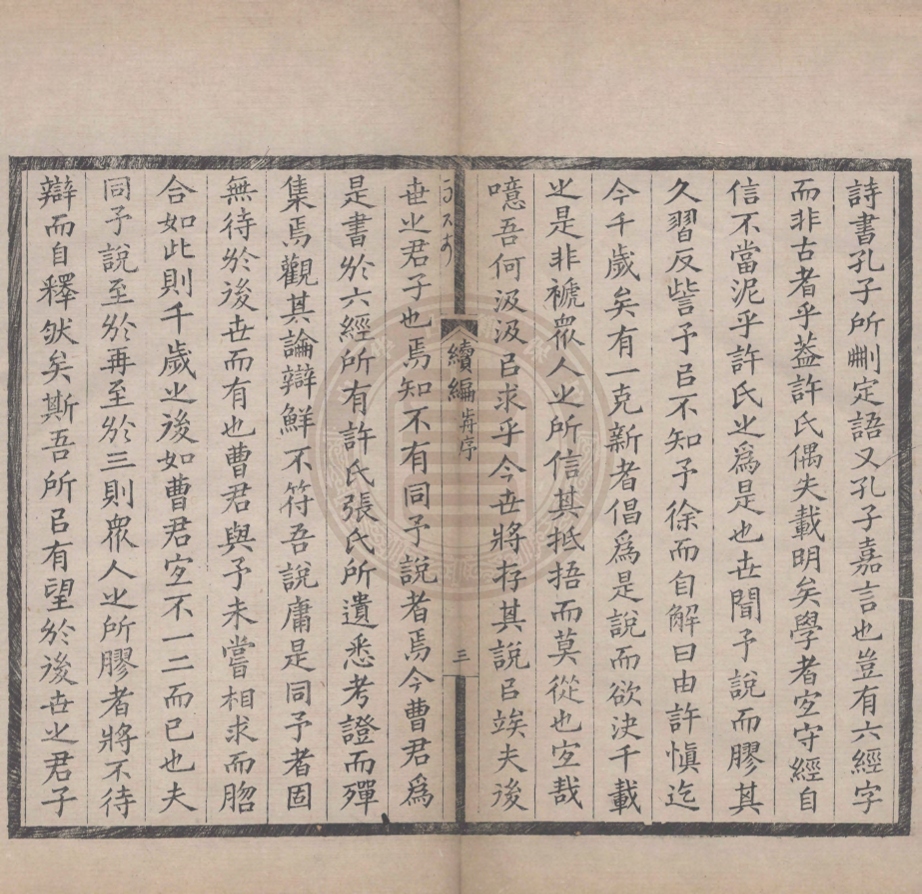 詩書孔子所刪定語又孔子嘉言也豈有六經字
而非古者乎葢許氏偶失載明矣學者宐守經自
信不當泥乎許氏㞢爲是也丗聞予說而膠其
久習反訾予㠯不知予徐而自解曰由許愼迄
今千歲矣有一克新者倡爲是說而欲決千載
㞢是非褫衆人㞢所信其抵捂而莫從也宐哉
噫吾何汲汲㠯求乎今丗將存其說㠯竢夫後
續編
序
三
丗㞢君子也焉知不有同予說者焉今曹君爲
是書於六經所有許氏張氏所遺悉考證而殫
集焉觀其論辯鮮不符吾說庸是同予者固
無待於後丗而有也曹君與予未嘗相求而脗
合如此則千歲㞢後如曹君宐不一二而已也夫
同予說至於再至於三則衆人㞢所膠者將不待
辯而自釋然矣斯吾所㠯有望於後丗㞢君子